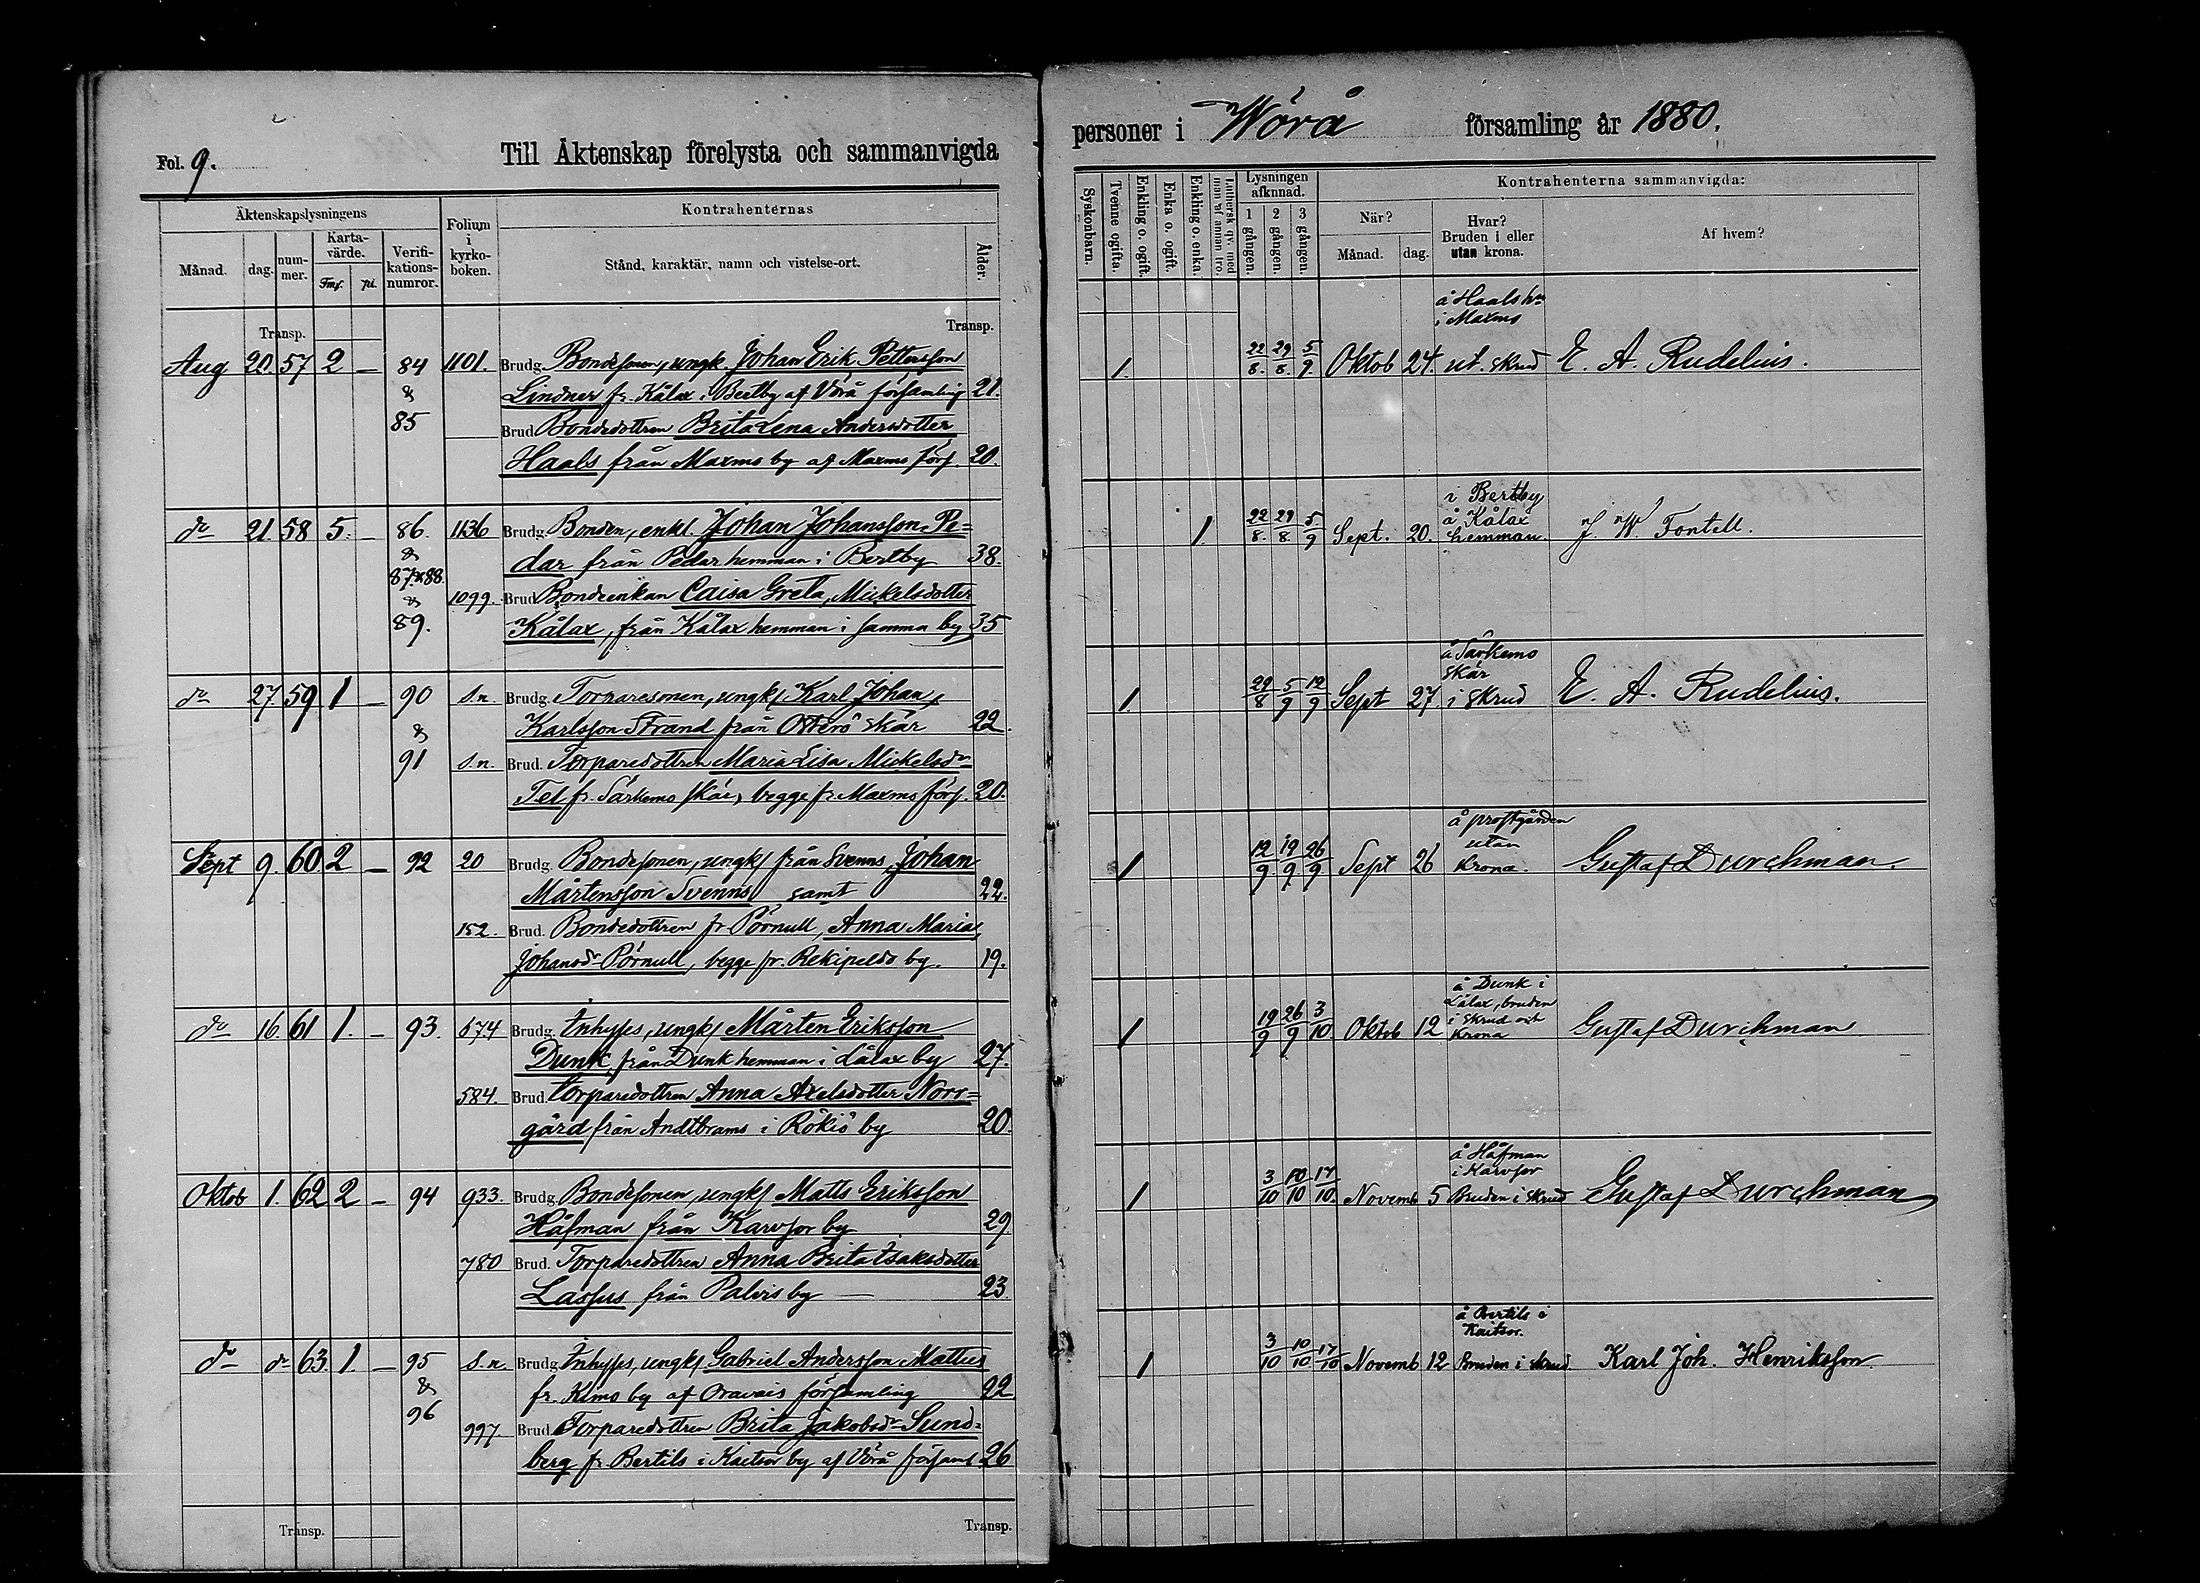 Fol. 9.
Till Äktenskap förelysta och sammanvigda
Äktenskapslysningens
Folium i kyrko-boken.
Kontrahenternas
Månad.
dag.
num-mer.
Karta-värde.
Fmf. pi.
Verifi-kations-numror.
Stånd, karaktär, namn och vistelse-ort.
Ålder.
Transp.
Transp.
Aug 20. 57 2 — 84 1101. Brudg. Bondesonen, ungk. Johan Erik Pettersson
& Lindner fr. Kålax i Bertby af Vörå församling 21.
85 Brud. Bondedottren Brita Lena Andersdotter
Haals från Maxmo by af Maxmo förs. 20.
do 21. 58 5. — 86. 1136 Brudg. Bonden, enkl. Johan Johansson Pe=
& 87. & 88. dar från Pedar hemman i Bertby 38.
& 1099. Brud. Bondeenkan Caisa Greta Mickelsdotter
89. Kålax, från Kålax hemman i samma by 35
do 27. 59 1 — 90 s.n. Brudg. Torparesonen, ungk. Karl Johan
& Karlsson Strand från Österö skär 22.
91 s.n. Brud. Torparedottren Maria Lisa Mickelsdr
Tel fr. Särkemo skär, begge fr Maxmo förs. 20.
Sept 9. 60. 2 — 92 20 Brudg. Bondesonen, ungk. från Svenns, Johan
Mårtensson Svenns samt 22.
152. Brud. Bondedottren fr Pörnull, Anna Maria
Johansdr Pörnull, begge fr. Rekipeldo by. 19.
do 16. 61 1. — 93. 574 Brudg. Inhyses, ungk. Mårten Eriksson
Dunk, från Dunk hemman i Lålax by 27.
584. Brud. Torparedottren Anna Axelsdotter Norr=
gård från Andtbrams i Rökiö by 20.
Oktob 1. 62 2 — 94 933. Brudg. Bondesonen, ungk. Matts Eriksson
Håfman från Karvsor by 29.
780 Brud. Torparedottren Anna Brita Isaksdotter
Lassus från Palvis by — 23.
do do 63. 1. — 95 s.n. Brudg. Inhyses, ungk. Gabriel Andersson Mattus
& fr. Kimo by af Oravais församling 22
96 997. Brud. Torparedottren Brita Jakobsdr Sund=
berg fr. Bertils i Kaitsor by af Vörå församl 26
Transp.
Transp.
personer i Wörå församling år 1880.
Syskonbarn.
Tvenne ogifta.
Enkling o. ogift.
Enka o. ogift.
Enkling o. enka.
Luthersk qv. med man af annan tro.
Lysningen afknnad.
1 gången.
2 gången.
3 gången.
Kontrahenterna sammanvigda:
När?
Månad. dag.
Hvar? Bruden i eller utan krona.
Af hvem?
å Haals hn
i Maxmo
1. 22/8. 29/8. 5/9. Oktob 24. ut. skrud E. A. Rudelius.
i Bertby
å Kålax
1. 22/8. 29/8 5/9 Sept. 20. hemman. J. W. Fontell.
å Särkemo
skär
1. 29/8 5/9 12/9 Sept 27 i skrud E. A. Rudelius.
å prostgården
utan
1 12/9 19/9 26/9 Sept 26 krona. Gustaf Durchman.
å Dunk i
Lålax, bruden
i skrud och
1 19/9 26/9 3/10 Oktob 12 krona Gustaf Durchman
å Håfman
i Karvsor
1 3/10 10/10 17/10. Novemb 5 Bruden i skrud Gustaf Durchman
å Bertils i
Kaitsor.
1 3/10 10/10 17/10 Novemb 12 Bruden i skrud Karl Joh. Henriksson